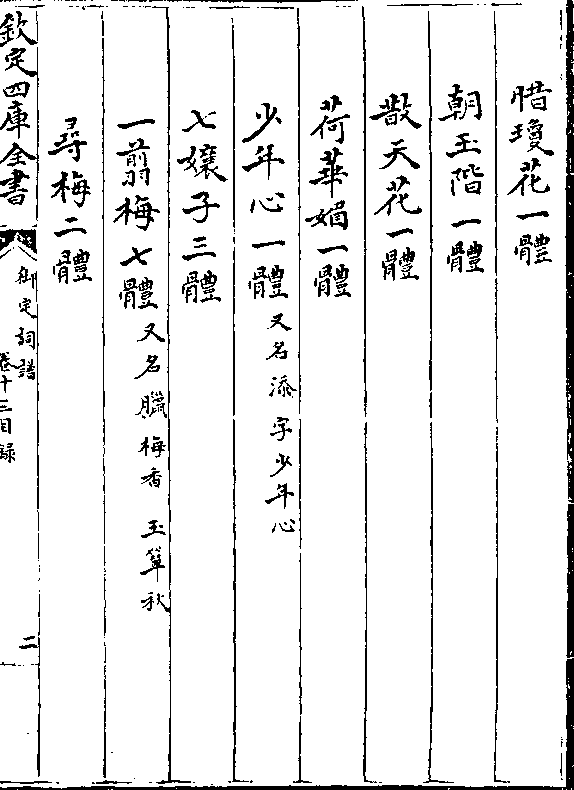 惜瓊花一體
朝玉階一體
散天花一體
荷華媚一體
少年心一體 又名添字少年心
七孃子三體
一翦梅七體 又名臘梅香 玉簟秋
尋梅二體
欽定四庫全書 御定詞譜 卷十三目録 二